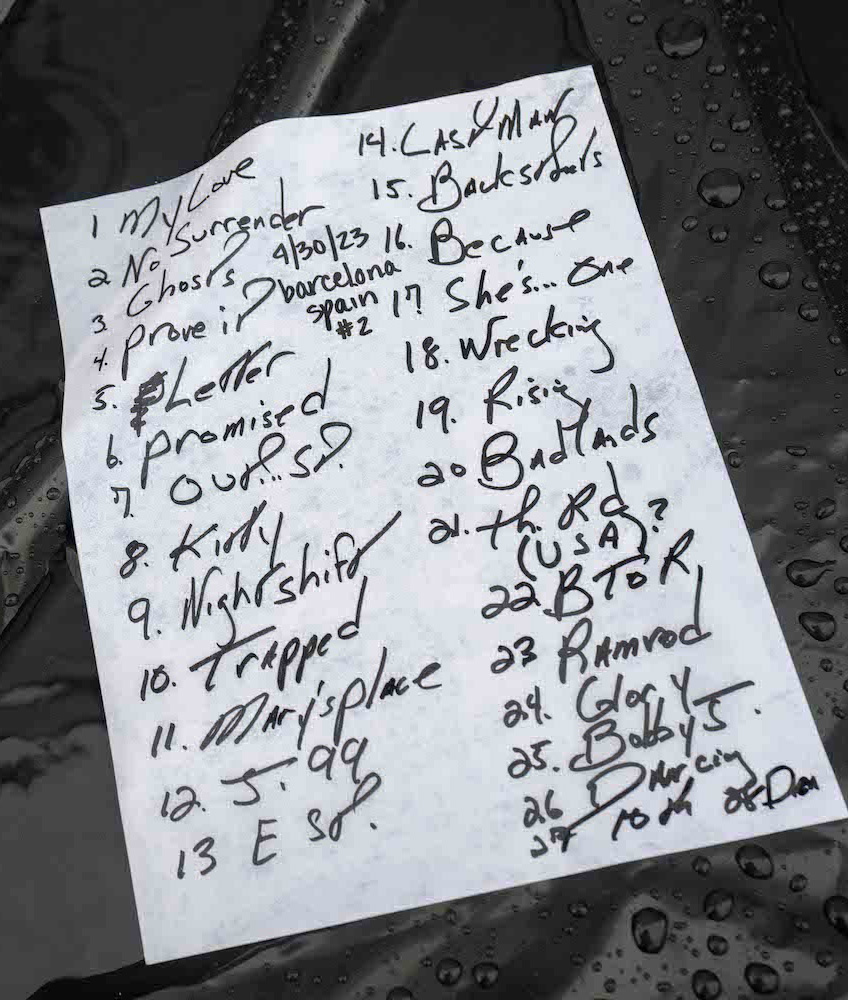 1 My Love
2 No Surrender
3. Ghosts
4. Prove it
5. Letter
6. Promised
7. Out...St.
8. Kitty
9. Nightshift
10. Trapped
11. Mary's place
12. J. 99
13 E St.
4/30/23
barcelona
spain
#2
14. Last Man
15. Backstreets
16. Because
17 She's... One
18. Wrecking
19. Rising
20 Badlands
21. Th. Rd
(USA)?
22 B To R
23 Ramrod
24. Glory
25. Bobby J.
26 Dancing
27 10th 28